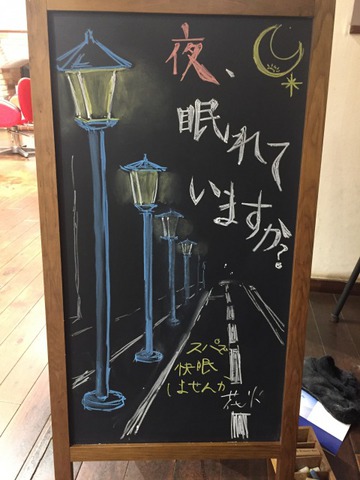 夜、
眠れて
いますか?
スパで
快眠
しませんか